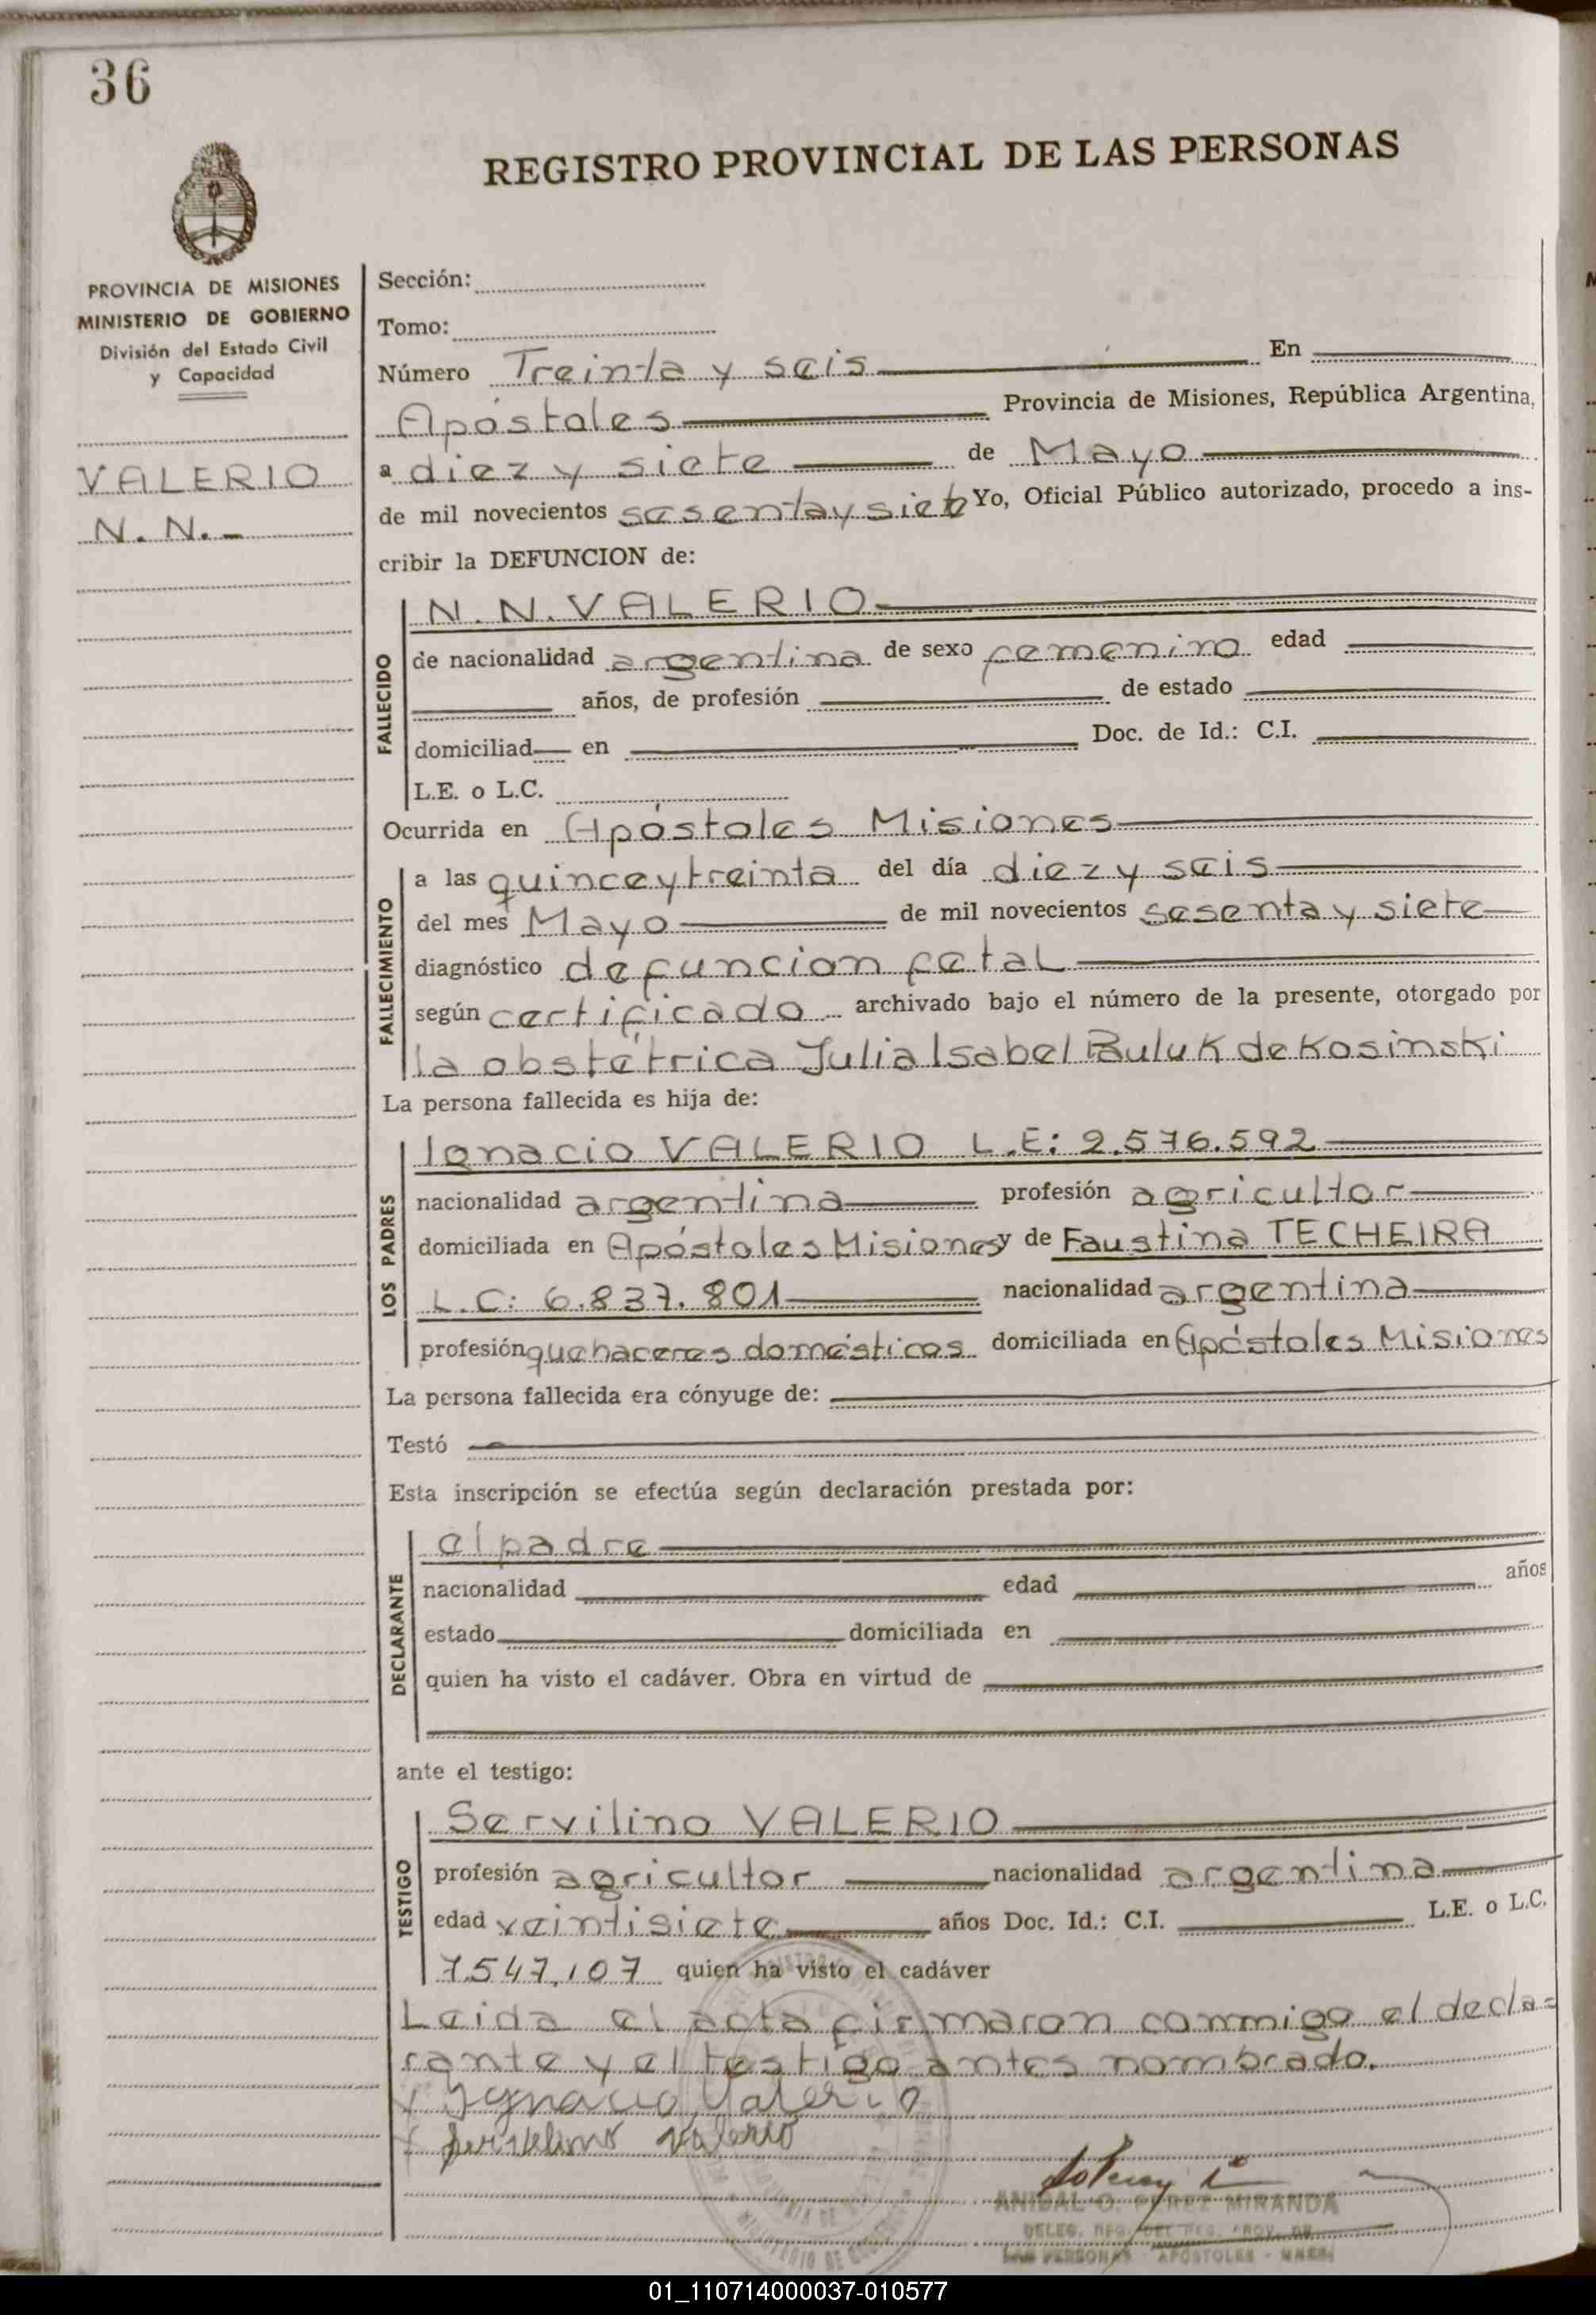 36
REGISTRO PROVINCIAL DE LAS PERSONAS
PROVINCIA DE MISIONES
MINISTERIO DE GOBIERNO
División del Estado Civil
y Capacidad
VALERIO
N. N. -
Sección:
Tomo:
Número Treinta y seis En
Apóstoles Provincia de Misiones, República Argentina,
a diez y siete de Mayo
de mil novecientos sesenta y siete Yo, Oficial Público autorizado, procedo a ins-
cribir la DEFUNCION de:
FALLECIDO
N. N. VALERIO
de nacionalidad argentina de sexo femenino edad
años, de profesión de estado
domiciliad en Doc. de Id.: C.I.
L.E. o L.C.
Ocurrida en Apóstoles Misiones
FALLECIMIENTO
a las quince y treinta del día diez y seis
del mes Mayo de mil novecientos sesenta y siete
diagnóstico defuncion fetal
según certificado archivado bajo el número de la presente, otorgado por
la obstétrica Julia Isabel Buluk de Kosinski
La persona fallecida es hija de:
LOS PADRES
Ignacio VALERIO L.E: 2.576.592
nacionalidad argentina profesión agricultor
domiciliada en Apóstoles Misiones y de Faustina TECHEIRA
L.C: 6.837.801 nacionalidad argentina
profesión quehaceres domésticos domiciliada en Apóstoles Misiones
La persona fallecida era cónyuge de:
Testó
Esta inscripción se efectúa según declaración prestada por:
DECLARANTE
el padre
nacionalidad edad años
estado domiciliada en
quien ha visto el cadáver. Obra en virtud de
ante el testigo:
TESTIGO
Servilino VALERIO
profesión agricultor nacionalidad argentina
edad veintisiete años Doc. Id.: C.I. L.E. o L.C.
7.547.107 quien ha visto el cadáver
Leida el acta firmaron conmigo el decla=
rante y el testigo antes nombrado.
Ignacio Valerio
Servilino Valerio
ANIBAL O. PEREZ MIRANDA
LAS PERSONAS - APOSTOLES - MNES.
01_110714000037-010577